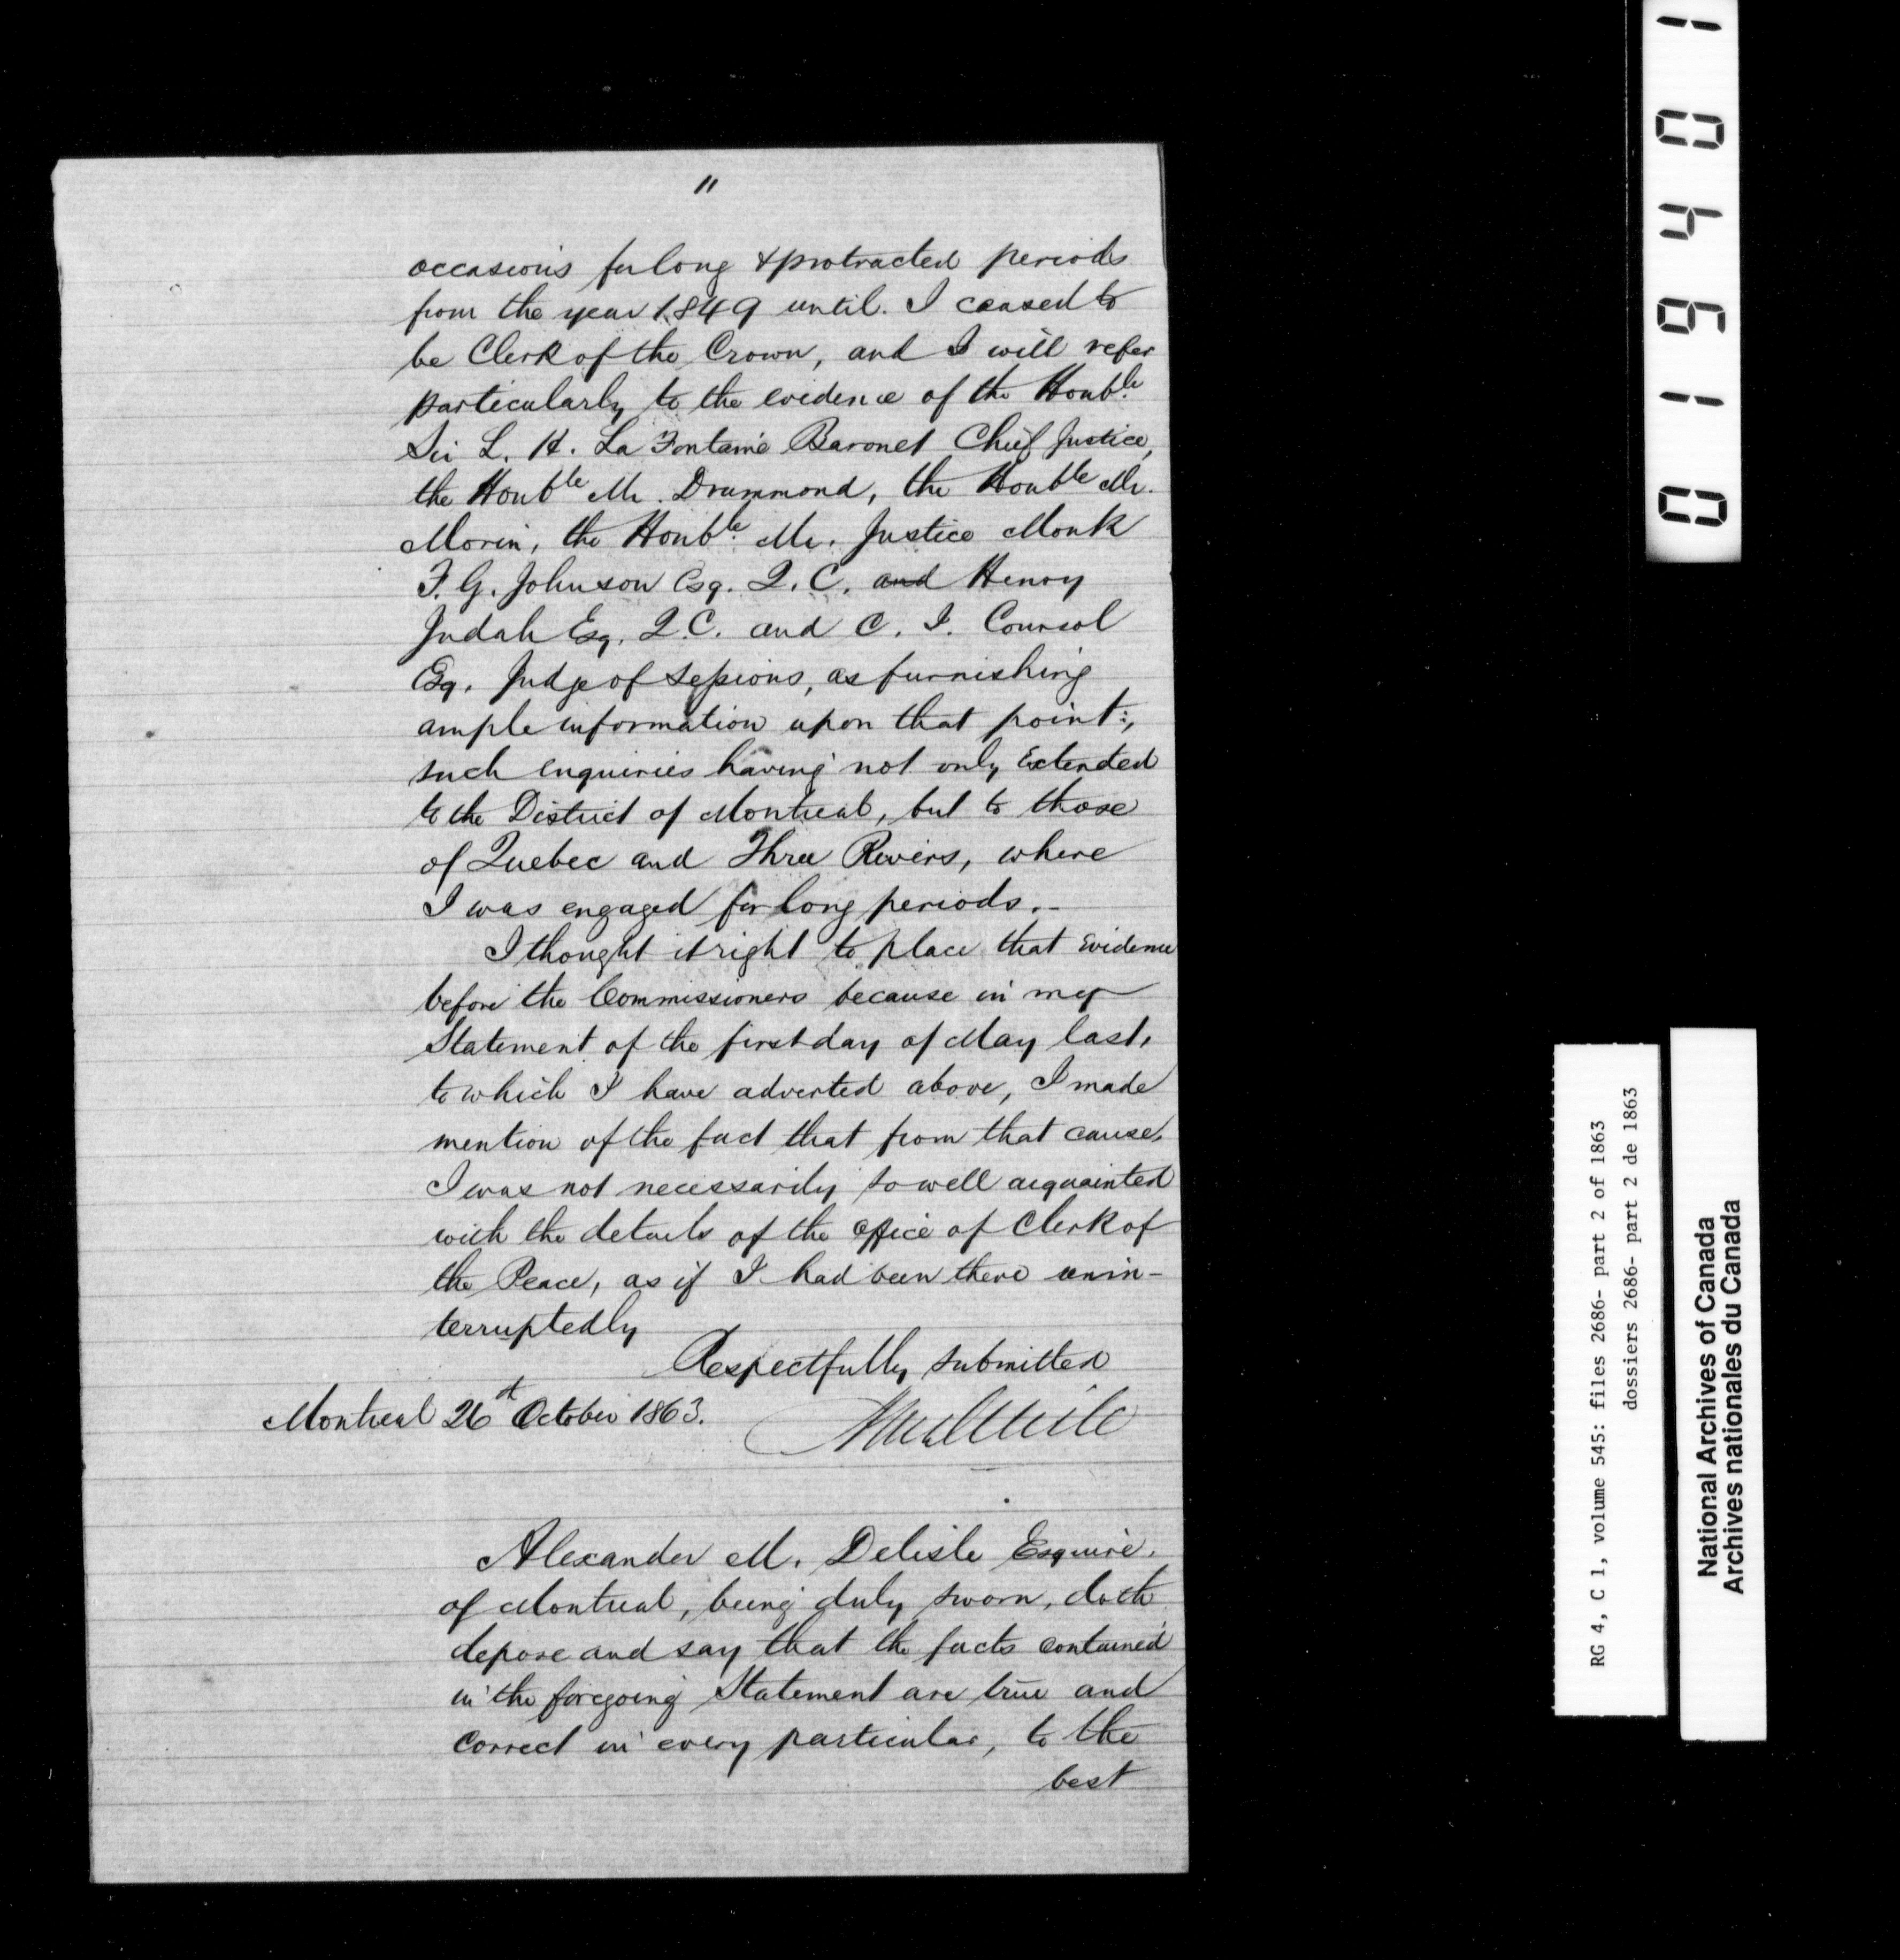 11
occasions for long & protracted periods
from the year 1849 until. I ceased to
be Clerk of the Crown, and I will refer
particularly to the evidence of the Honble
Sir L. H. La Fontaine Baronet Chief Justice,
the Honble Mr. Drummond, the Honble Mr.
Morin, the Honble Mr. Justice Monk
F. G. Johnson Esq. Q. C. and Henry
Judah Esq. Q.C. and C. J. Coursol
Esq. Judge of Sessions, as furnishing
ample information upon that point;
such enquiries having not only Extended
to the District of Montreal, but to those
of Quebec and Three Rivers, where
I was engaged for long periods.-
I thought it right to place that Evidence
before the Commissioners because in my
Statement of the first day of May last,
to which I have adverted above, I made
mention of the fact that from that cause,
I was not necessarily so well acquainted
with the details of the office of Clerk of
the Peace, as if I had been there unin-
terruptedly
Respectfully submitted
Montreal 26th October 1863.
Alexander M. Delisle Esquire.
of Montreal, being duly sworn, doth
depose and say that the facts contained
in the foregoing Statement are true and
correct in every particular, to the
best
019401
RG 4, C 1, volume 545: files 2686- part 2 of 1863
dossiers 2686- part 2 de 1863
National Archives of Canada
Archives nationales du Canada